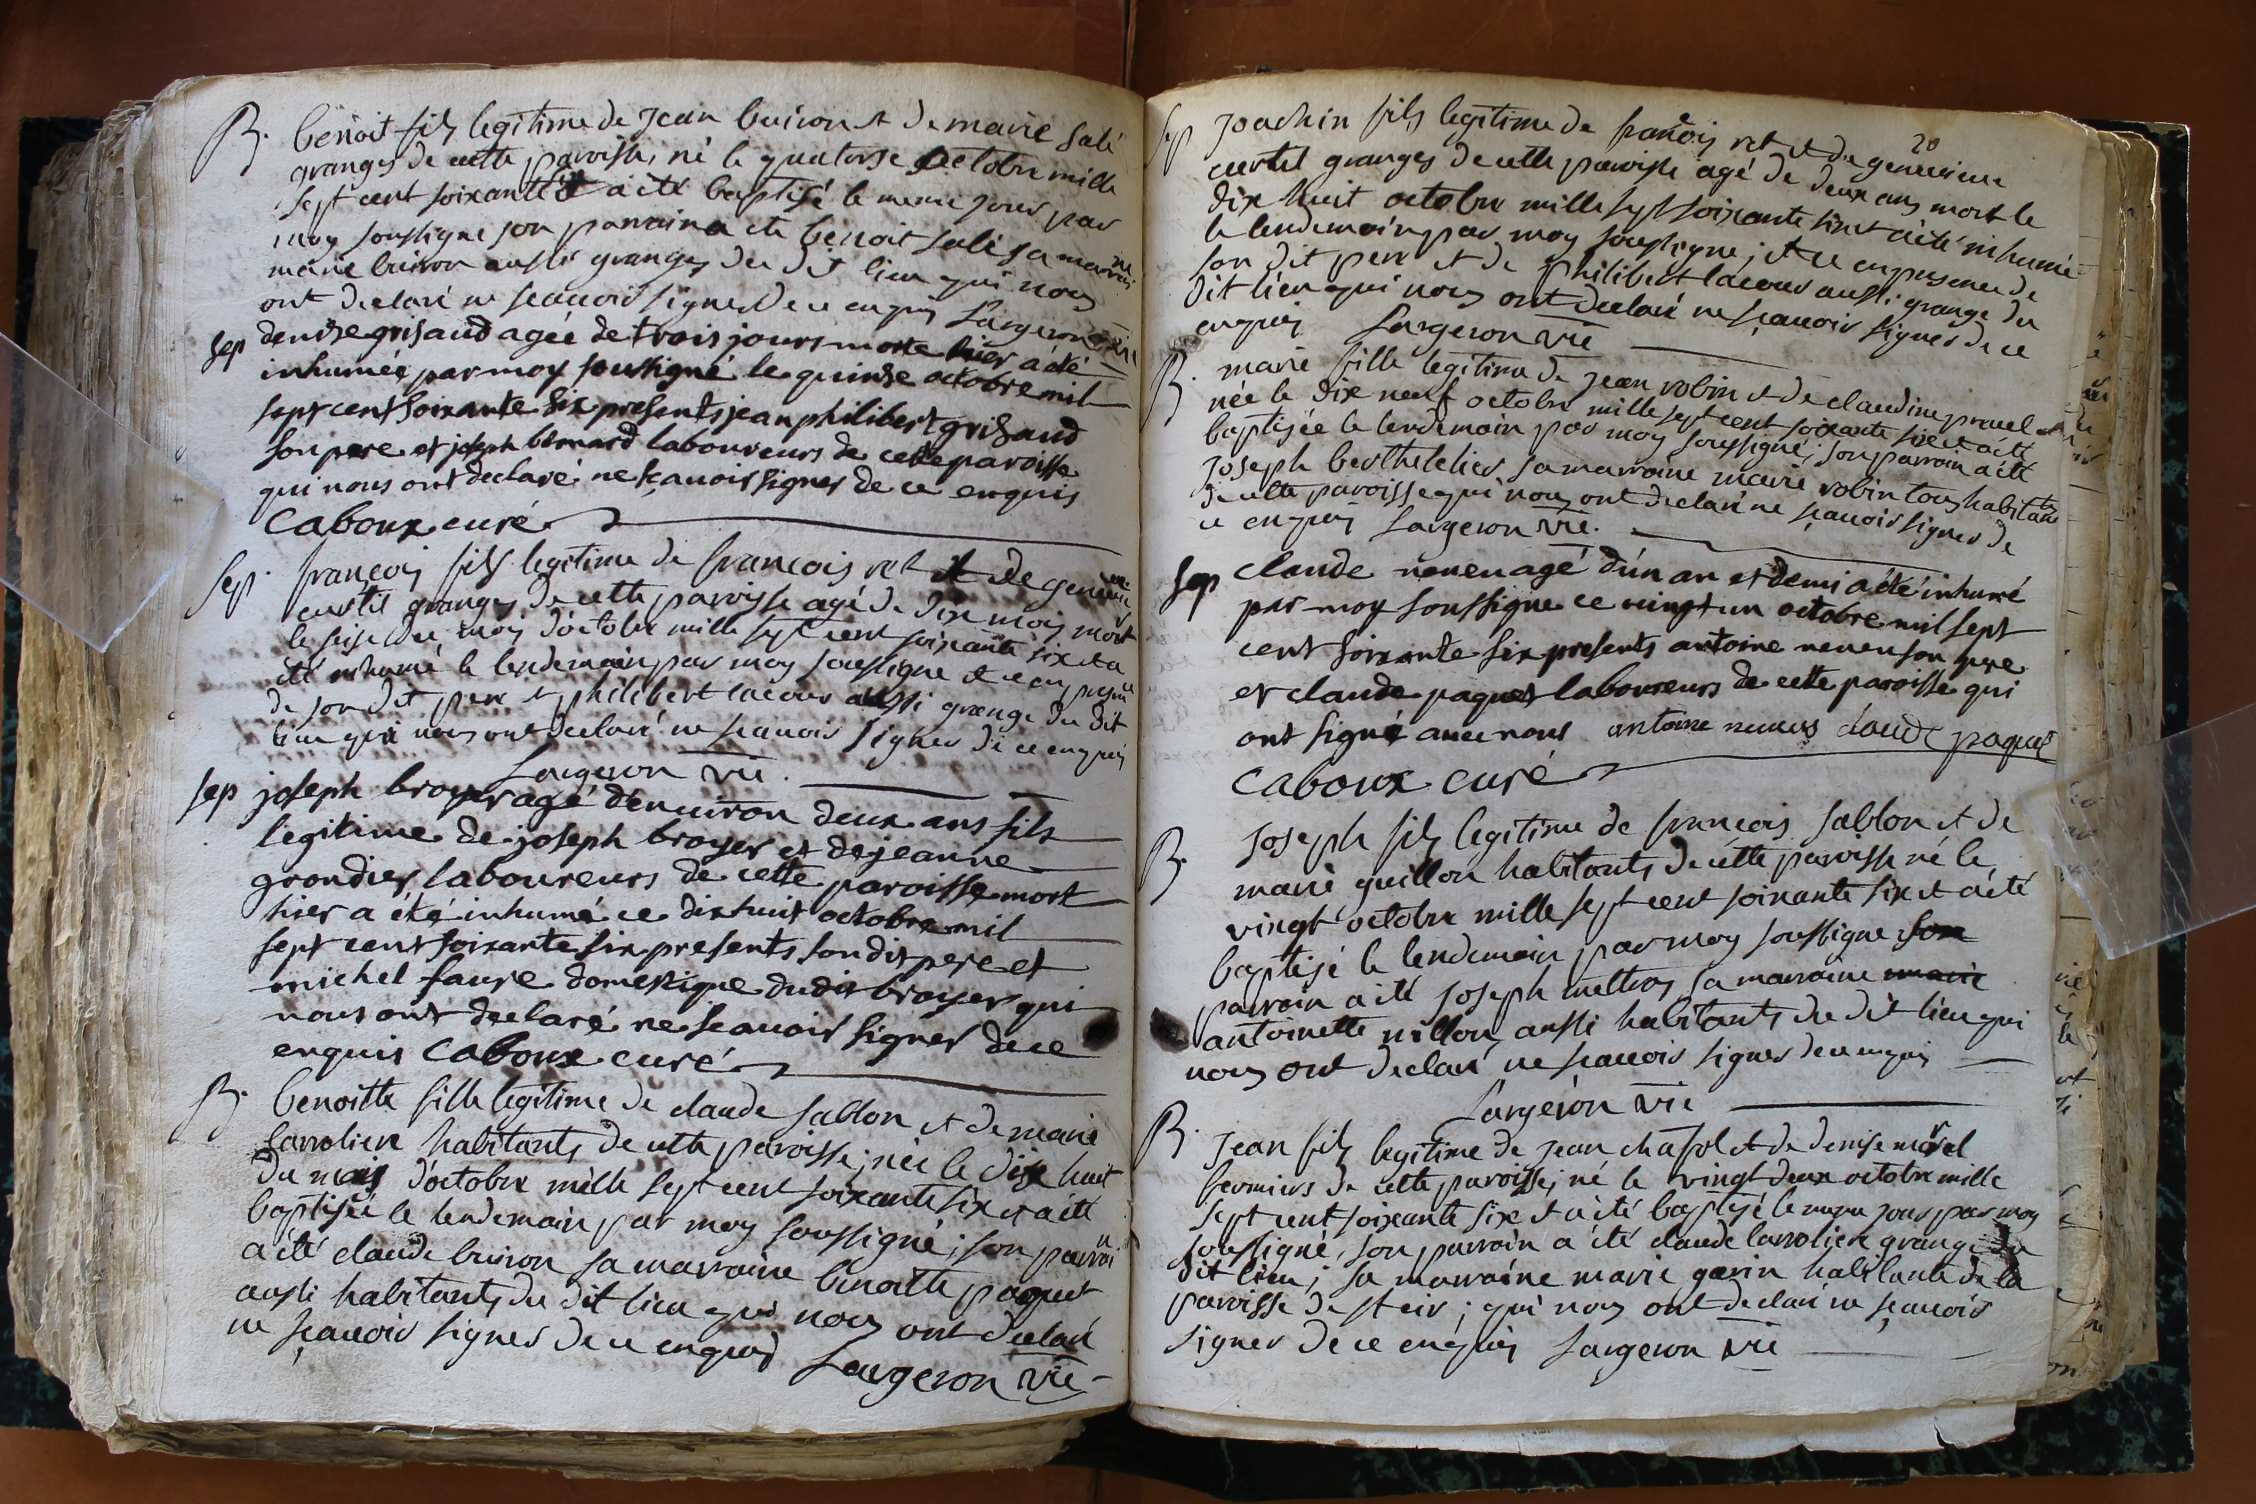 B. benoit fils legitime de jean buiron et de marie salé
granges de cette paroisse, né le quatorse octobre mille
sept cent soixante six a été baptisé le meme jour par
moy soussigné son parrain a ete benoit salé sa marraine
marie buiron aussi granges du dit lieu qui nous
ont declaré ne scavoir signer de ce enquis Largeron vic
sep denise grisaud agée de trois jours morte hier a été
inhumée par moy soussigné le quinse octobre mil
sept cent soixante six presents jean philibert grisaud
son pere et joseph bernard laboureurs de cette paroisse
qui nous ont declaré ne sçavoir signer de ce enquis
Caboux curé
sep. françois fils legitime de francois ret et de genevieve
curtil granges de cette paroisse agé de dix mois mort
le seise du mois d'octobre mille sept cent soixante six et a
été inhumé le lendemain par moy soussigné et ce en presence
de son dit pere et philibert lacour aussi grange du dit
lieu qui nous ont declaré ne scavoir signer de ce enquis
Largeron vic.
sep joseph broyer agé d'environ deux ans fils
legitime de joseph broyer et de jeanne
grondier laboureurs de cette paroisse mort
hier a été inhumé ce dix huit octobre mil
sept cent soixante six presents son dit pere et
michel faure domestique dudit broyer qui
nous ont declaré ne scavoir signer de ce
enquis Caboux curé
B. benoitte fille legitime de claude sablon et de marie
larroliere habitants de cette paroisse; née le dix huit
du mois d'octobre mille sept cent soixante six et a été
baptisée le lendemain par moy soussigné; son parrain
a été claude buiron sa marraine benoitte paquet
aussi habitants du dit lieu qui nous ont declaré
ne sçavoir signer de ce enquis Largeron vic
20
sep joachin fils legitime de francois ret et de genevieve
curtil granges de cette paroisse agé de deux ans mort le
dix huit octobre mille sept soixante six et a été inhumé
le lendemain par moy soussigné; et ce en presence de
son dit pere et de philibert lacour aussi grange du
dit lieu qui nous ont declaré ne sçavoir signer de ce
enquis Largeron vic
B. marie fille legitime de jean robin et de claudine
née le dix neuf octobre mille sept cent soixante six et a été
baptisée le lendemain par moy soussigné; son parrain a été
joseph berthelelier sa marraine marie robin tous habitants
de cette paroisse qui nous ont declaré ne sçavoir signer de
ce enquis Largeron vic.
sep claude neveu agé d'un an et demi a été inhumé
par moy soussigné ce vingt un octobre mil sept
cent soixante six presents antoine neveu son pere
et claude paquet laboureurs de cette paroisse qui
ont signé avec nous antoine neveu claude paquet
Caboux curé
B. joseph fils legitime de francois sablon et de
marie guillon habitants de cette paroisse né le
vingt octobre mille sept cent soixante six et a été
baptisé le lendemain par moy soussigné son
parrain a été joseph mettras sa marraine marie
antoinette nillon aussi habitants du dit lieu qui
nous ont declaré ne scavoir signer de ce enquis
Largeron vic
B. jean fils legitime de jean chapol et de denise morel
fermiers de cette paroisse; né le vingt deux octobre mille
sept cent soixante six et a été baptisé le meme jour par moy
soussigné, son parrain a été claude larroliere grange du
dit lieu; sa marraine marie garin habitante de la
paroisse de st cir; qui nous ont declaré ne sçavoir
signer de ce enquis Largeron vic